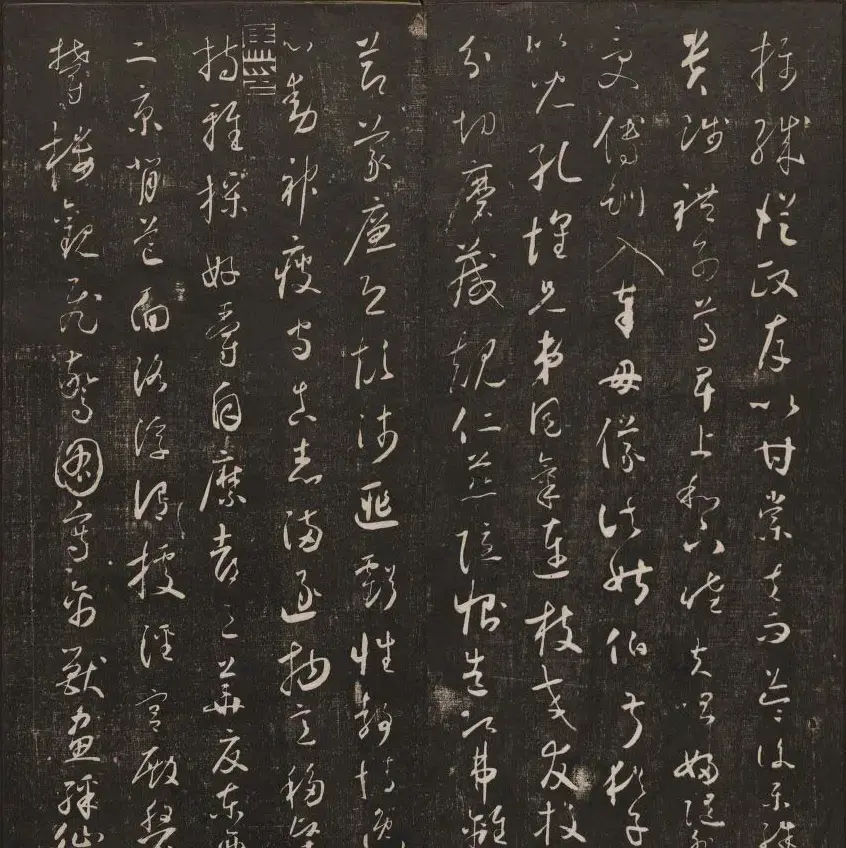 攝職從政存以甘棠去而益詠樂殊
貴賤禮別尊卑上和下睦夫唱婦隨外
受傅訓入奉母儀諸姑伯叔猶子
比兒孔懷兄弟同氣連枝交友投
分切磨箴規仁慈隱惻造次弗離
節義廉退顛沛匪虧性靜情逸
心動神疲守真志滿逐物意移堅
持雅操好爵自縻都邑華夏東西
二京背芒面洛浮渭據涇宮殿盤
鬱樓觀飛驚圖寫禽獸畫綵仙